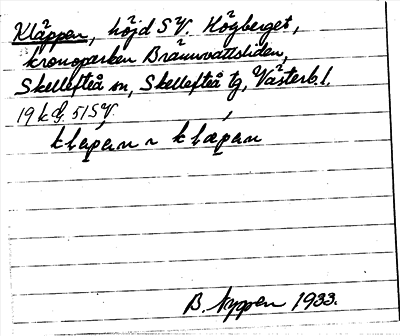 Kläppen, höjd SV. Högberget,
kronoparken Brännvattsliden,
Skellefteå sn, Skellefteå tg, Västerb. l.
51 SV.
klápan ~ klæpan
B. 1933.